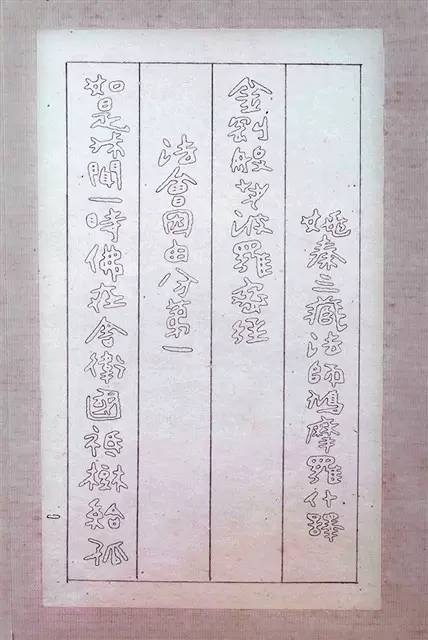 姚秦三藏法師鳩摩羅什譯
金剛般若波羅密經
法會因由分第一
如是我聞一時佛在舍衛國祇樹給孤